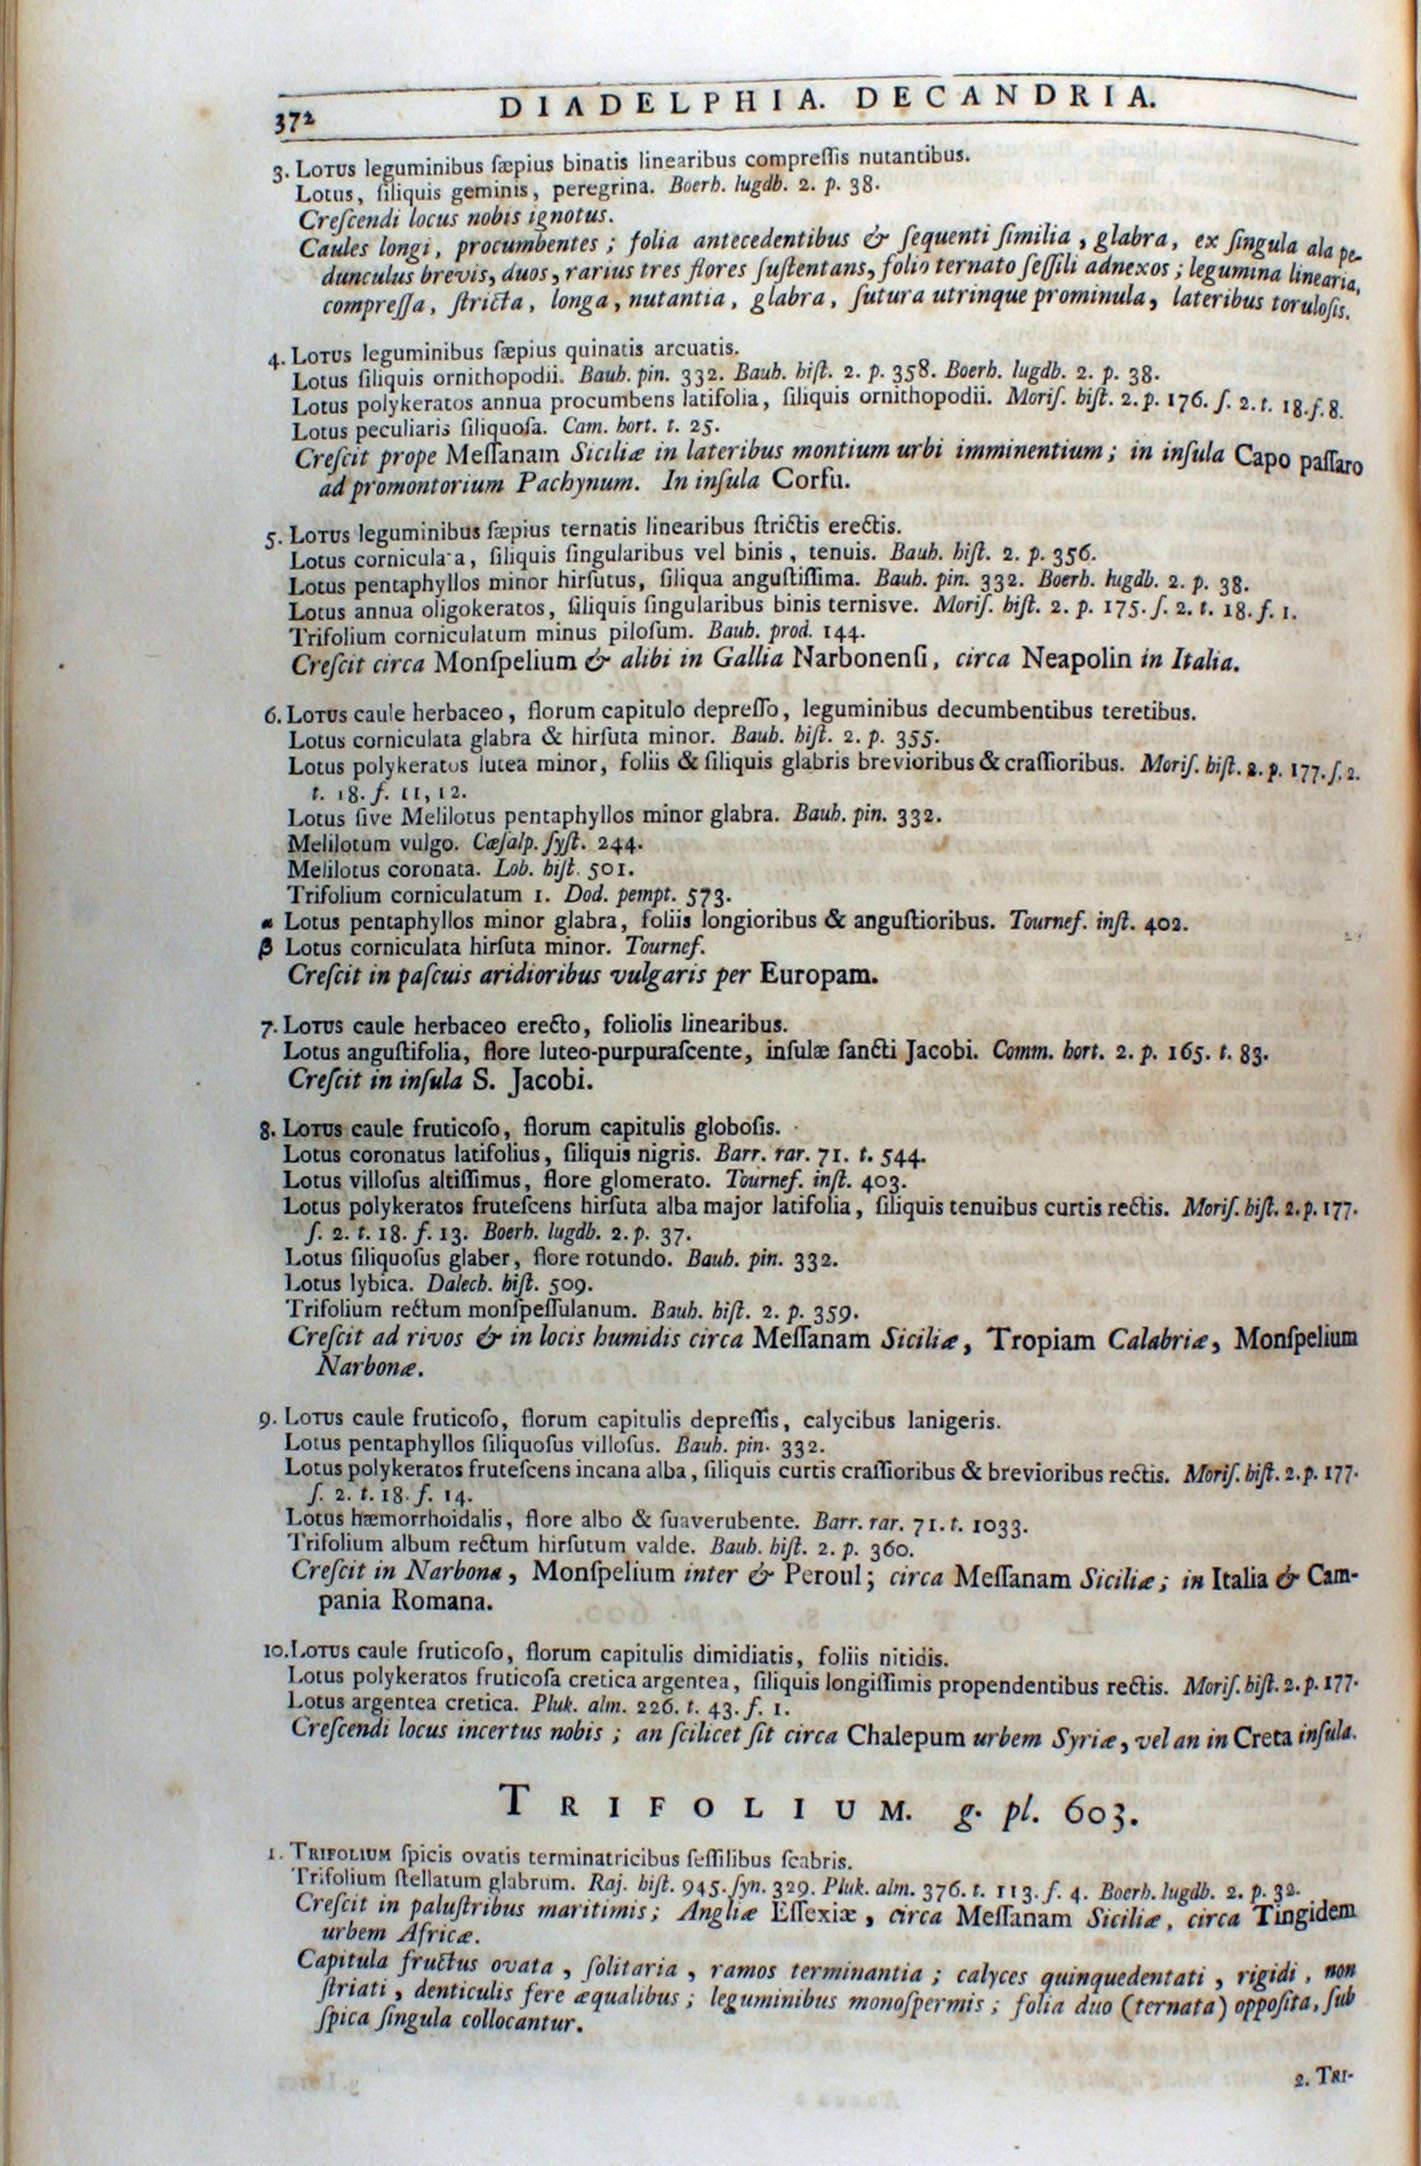 372 DIADELPHIA. DECANDRIA.
3. LOTUS leguminibus ſæpius binatis linearibus compreſſis nutantibus.
Lotus, ſiliquis geminis, peregrina. Boerh. lugdb. 2. p. 38.
Creſcendi locus nobis ignotus.
Caules longi, procumbentes; folia antecedentibus & ſequenti ſimilia, glabra, ex ſingula ala pe-
dunculus brevis, duos, rarius tres flores ſuſtentans, folio ternato ſeſſili adnexos; legumina linearia,
compreſſa, ſtricta, longa, nutantia, glabra, ſutura utrinque prominula, lateribus toruloſis.
4. LOTUS leguminibus ſæpius quinatis arcuatis.
Lotus ſiliquis ornithopodii. Bauh. pin. 332. Bauh. hiſt. 2. p. 358. Boerh. lugdb. 2. p. 38.
Lotus polykeratos annua procumbens latifolia, ſiliquis ornithopodii. Moriſ. hiſt. 2. p. 176. ſ. 2. t. 18. f. 8.
Lotus peculiaris ſiliquoſa. Cam. hort. t. 25.
Creſcit prope Meſſanam Siciliæ in lateribus montium urbi imminentium; in inſula Capo paſſaro
ad promontorium Pachynum. In inſula Corfu.
5. LOTUS leguminibus ſæpius ternatis linearibus ſtrictis erectis.
Lotus cornicula a, ſiliquis ſingularibus vel binis, tenuis. Bauh. hiſt. 2. p. 356.
Lotus pentaphyllos minor hirſutus, ſiliqua anguſtiſſima. Bauh. pin. 332. Boerh. lugdb. 2. p. 38.
Lotus annua oligokeratos, ſiliquis ſingularibus binis ternisve. Moriſ. hiſt. 2. p. 175. ſ. 2. t. 18. f. 1.
Trifolium corniculatum minus piloſum. Bauh. prod. 144.
Creſcit circa Monſpelium & alibi in Gallia Narbonenſi, circa Neapolin in Italia.
6. LOTUS caule herbaceo, florum capitulo depreſſo, leguminibus decumbentibus teretibus.
Lotus corniculata glabra & hirſuta minor. Bauh. hiſt. 2. p. 355.
Lotus polykeratos lutea minor, foliis & ſiliquis glabris brevioribus & craſſioribus. Moriſ. hiſt. 2. p. 177. ſ. 2.
t. 18. f. 11, 12.
Lotus ſive Melilotus pentaphyllos minor glabra. Bauh. pin. 332.
Melilotum vulgo. Cæſalp. ſyſt. 244.
Melilotus coronata. Lob. hiſt. 501.
Trifolium corniculatum 1. Dod. pempt. 573.
α Lotus pentaphyllos minor glabra, foliis longioribus & anguſtioribus. Tournef. inſt. 402.
β Lotus corniculata hirſuta minor. Tournef.
Creſcit in paſcuis aridioribus vulgaris per Europam.
7. LOTUS caule herbaceo erecto, foliolis linearibus.
Lotus anguſtifolia, flore luteo-purpuraſcente, inſulæ ſancti Jacobi. Comm. hort. 2. p. 165. t. 83.
Creſcit in inſula S. Jacobi.
8. LOTUS caule fruticoſo, florum capitulis globoſis.
Lotus coronatus latifolius, ſiliquis nigris. Barr. rar. 71. t. 544.
Lotus villoſus altiſſimus, flore glomerato. Tournef. inſt. 403.
Lotus polykeratos fruteſcens hirſuta alba major latifolia, ſiliquis tenuibus curtis rectis. Moriſ. hiſt. 2. p. 177.
ſ. 2. t. 18. f. 13. Boerh. lugdb. 2. p. 37.
Lotus ſiliquoſus glaber, flore rotundo. Bauh. pin. 332.
Lotus lybica. Dalech. hiſt. 509.
Trifolium rectum monſpeſſulanum. Bauh. hiſt. 2. p. 359.
Creſcit ad rivos & in locis humidis circa Meſſanam Siciliæ, Tropiam Calabriæ, Monſpelium
Narbonæ.
9. LOTUS caule fruticoſo, florum capitulis depreſſis, calycibus lanigeris.
Lotus pentaphyllos ſiliquoſus villoſus. Bauh. pin. 332.
Lotus polykeratos fruteſcens incana alba, ſiliquis curtis craſſioribus & brevioribus rectis. Moriſ. hiſt. 2. p. 177.
ſ. 2. t. 18. f. 14.
Lotus hæmorrhoidalis, flore albo & ſuaverubente. Barr. rar. 71. t. 1033.
Trifolium album rectum hirſutum valde. Bauh. hiſt. 2. p. 360.
Creſcit in Narbona, Monſpelium inter & Peroul; circa Meſſanam Siciliæ; in Italia & Cam-
pania Romana.
10. LOTUS caule fruticoſo, florum capitulis dimidiatis, foliis nitidis.
Lotus polykeratos fruticoſa cretica argentea, ſiliquis longiſſimis propendentibus rectis. Moriſ. hiſt. 2. p. 177.
Lotus argentea cretica. Pluk. alm. 226. t. 43. f. 1.
Creſcendi locus incertus nobis; an ſcilicet ſit circa Chalepum urbem Syriæ, vel an in Creta inſula.
TRIFOLIUM. g. pl. 603.
1. TRIFOLIUM ſpicis ovatis terminatricibus ſeſſilibus ſcabris.
Trifolium ſtellatum glabrum. Raj. hiſt. 945. ſyn. 329. Pluk. alm. 376. t. 113. f. 4. Boerh. lugdb. 2. p. 32.
Creſcit in paluſtribus maritimis; Angliæ Eſſexiæ, circa Meſſanam Siciliæ, circa Tingidem
urbem Africæ.
Capitula fructus ovata, ſolitaria, ramos terminantia; calyces quinquedentati, rigidi, non
ſtriati, denticulis fere æqualibus; leguminibus monoſpermis; folia duo (ternata) oppoſita, ſub
ſpica ſingula collocantur.
2. TRI-